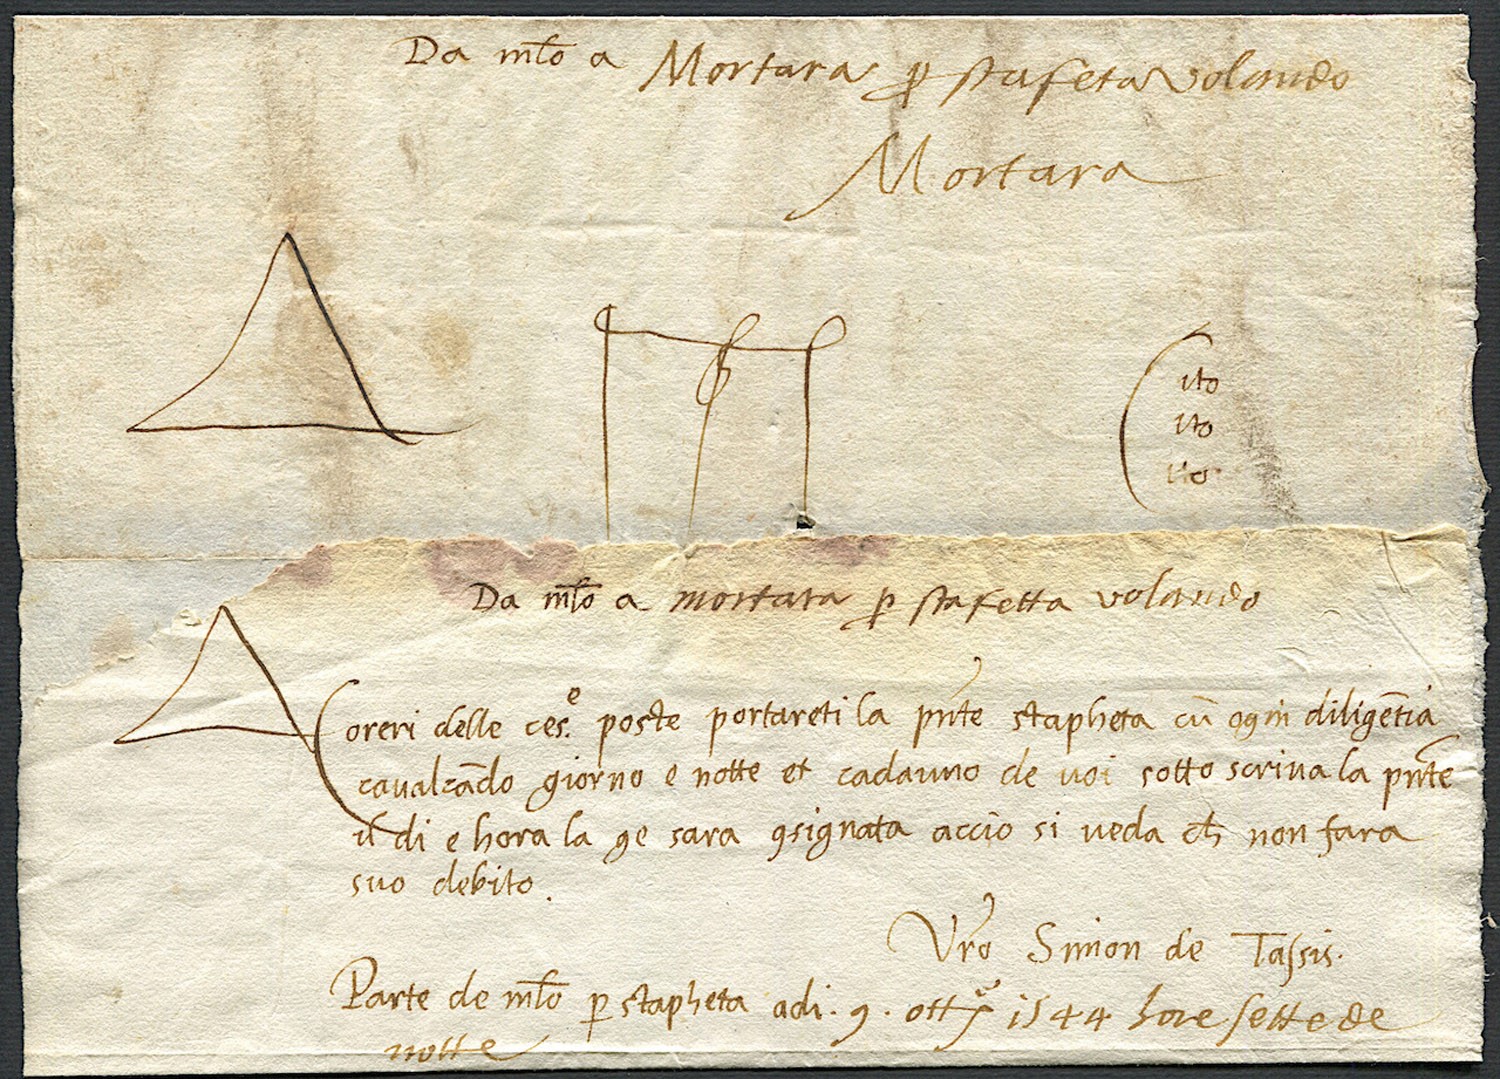 Da mlo a Mortara p stafeta volando
Mortara
Cito
ito
ito
Da mlo a mortara p staffetta volando
Coreri delle ces.e poste portareti la pnte stapheta cu ogni diligetia
cavalcado giorno e notte et cadauno de voi sotto scriva la pnte
il di e hora la ge sara gsignata accio si veda ch non fara
suo debito.
Vro Simon de Tassis.
Parte de mlo p stapheta adi. 9. ott 1544 hore sette de
notte